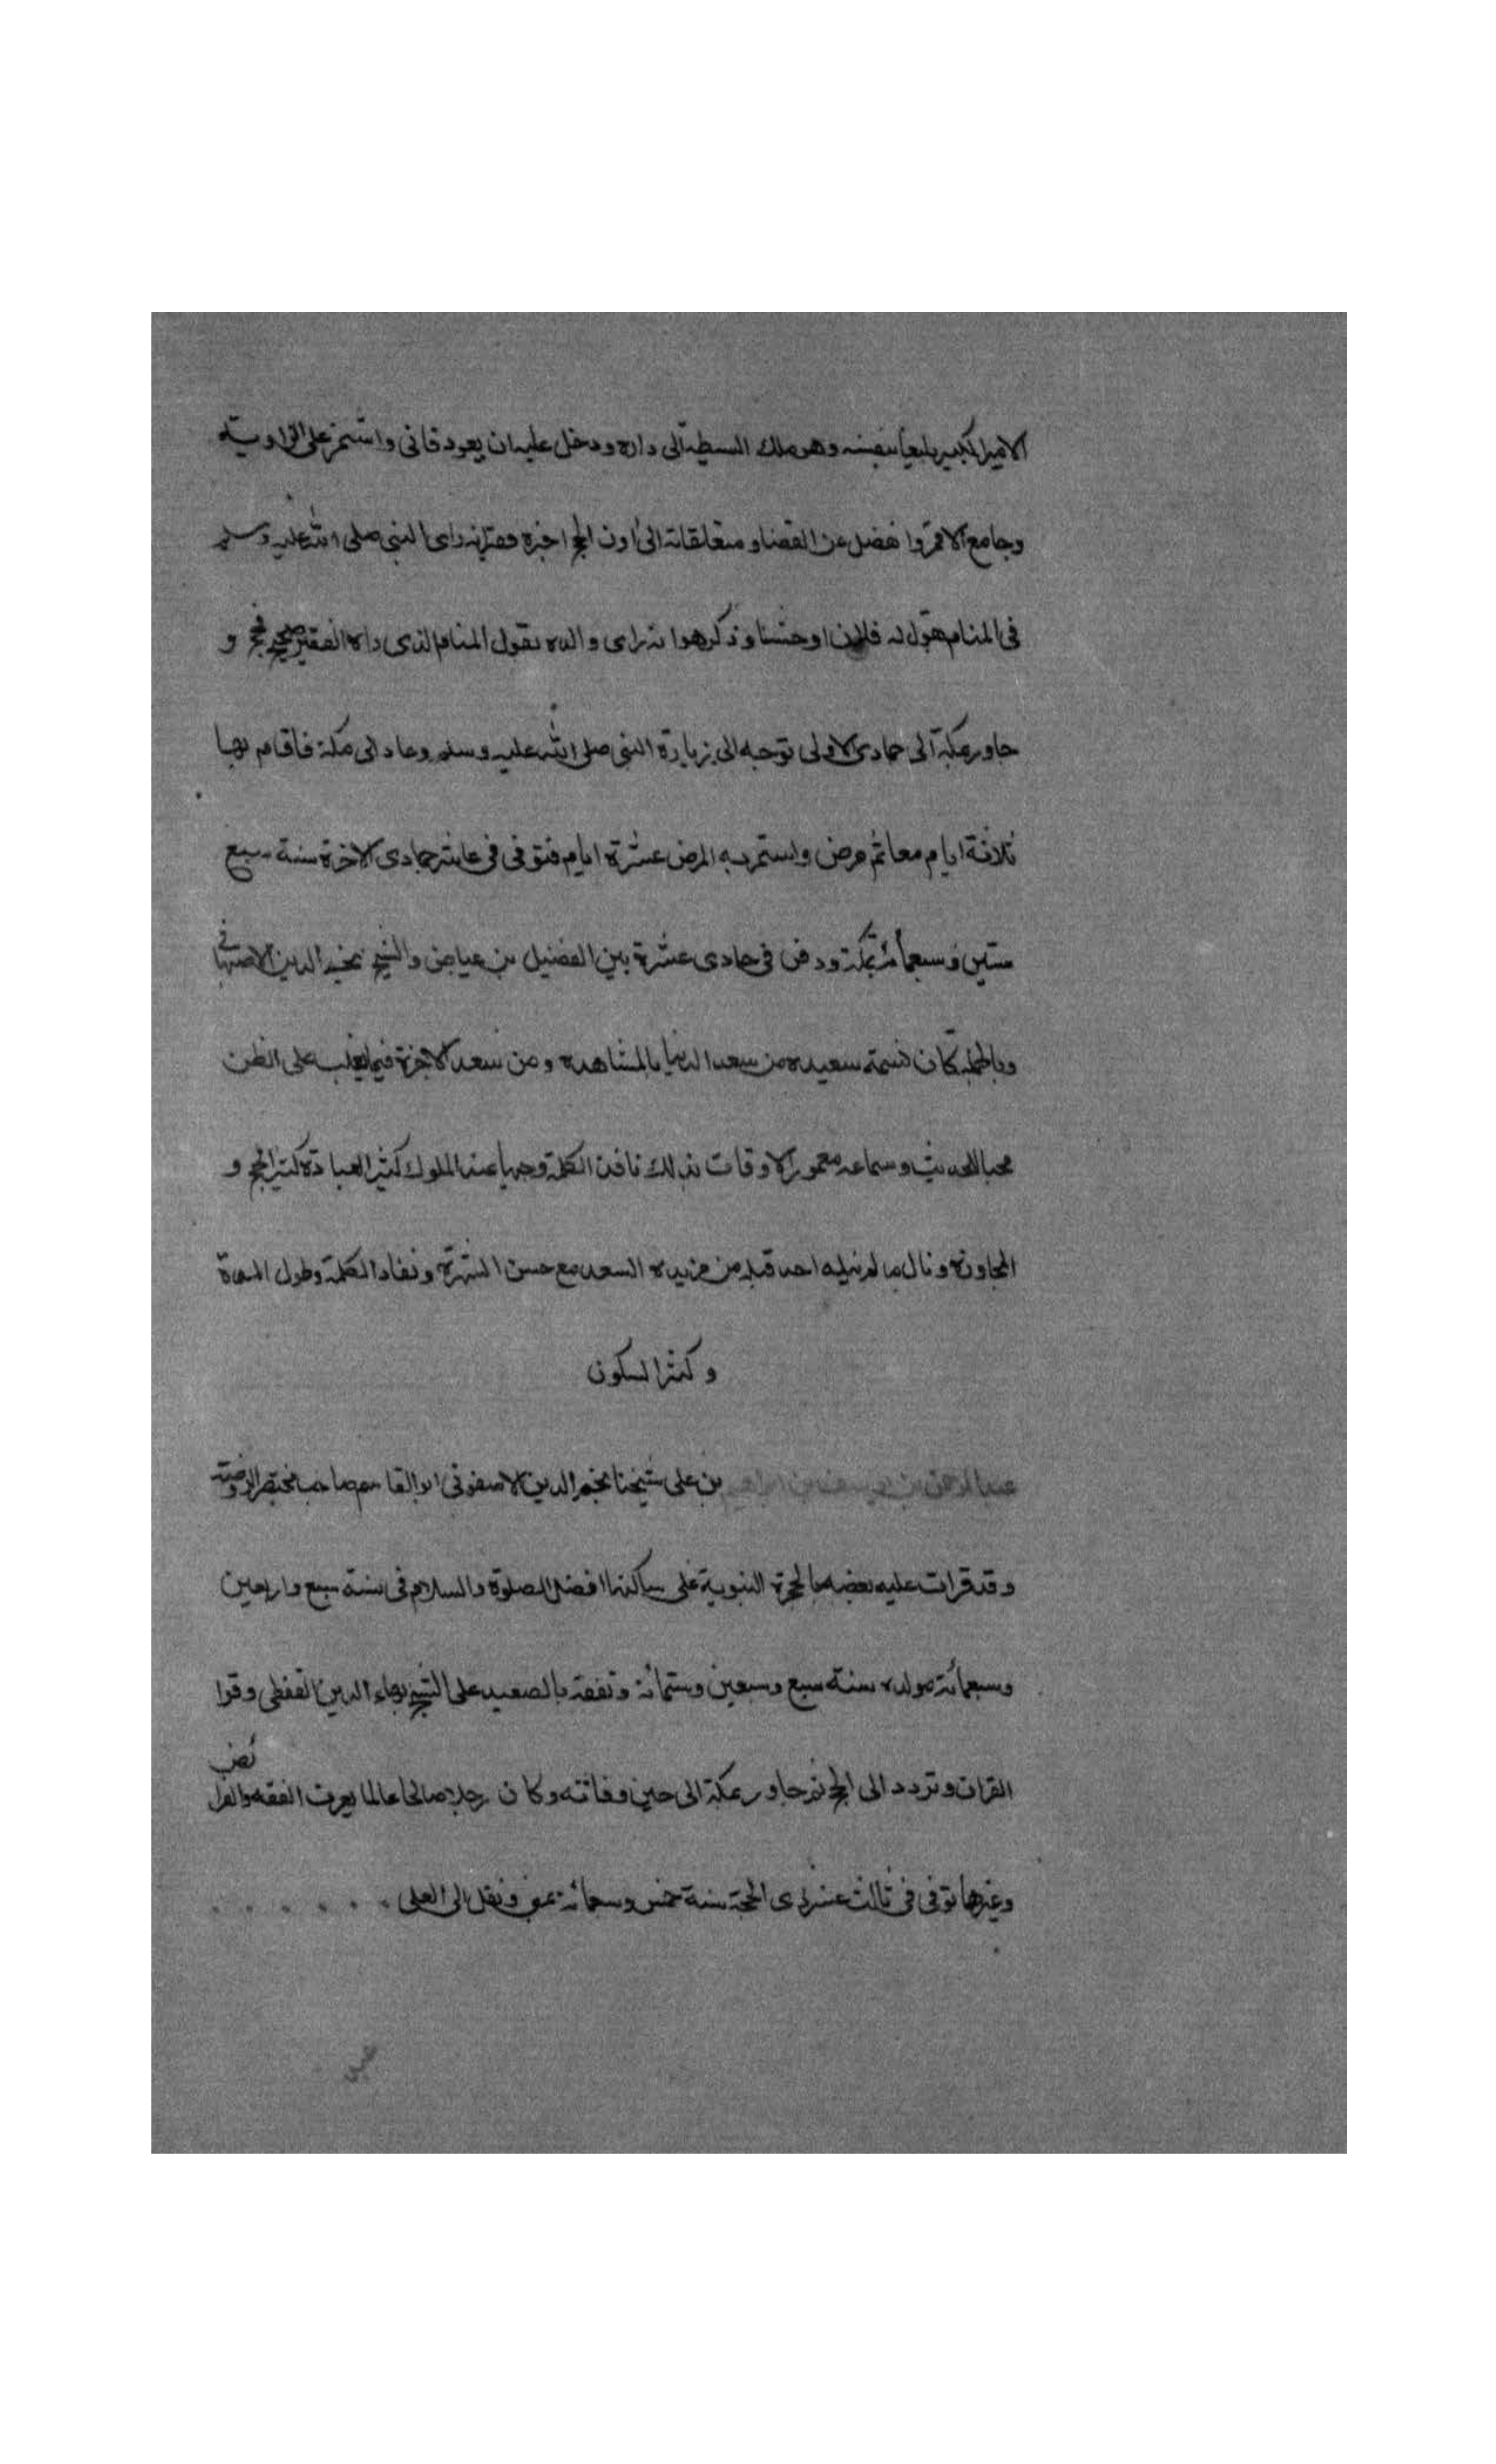 الامير الكبير يلبغا بنفسه وهو ملك البسيطة الى داره ودخل عليه ان يعود فابى واستمر على الزاوية
وجامع الاقمر وانفصل عن القضا ومتعلقاته الى اون الحج اخبره فقيل انه راى النبى صلى الله عليه وسلم
فى المنام يقول له فلان اوحشنا وذكر هو انه راى والده يقول المنام الذى راه الفقير صحيح فحج و
جاور بمكة الى جمادى الاولى توجه الى زيارة النبى صلى الله عليه وسلم وعاد الى مكة فاقام بها
ثلاثة ايام معا ثم مرض واستمر به المرض عشرة ايام فتوفى فى عاشر جمادى الاخرة سنة سبع
ستين وسبعمائة بمكة ودفن فى حادى عشرة بين الفضيل بن عياض والشيخ نجم الدين الاصبهانى
وبالجملة كان نسمة سعيده من سعد الدنيا بالمشاهده ومن سعد الاخرة فيما يغلب على الظن
محبا للحديث وسماعه معمور الاوقات بذلك نافذ الكلمة وجيها عند الملوك كثير العبادة كثير الحج و
المجاورة ونال ما لم ينيله احد قبله من مزيده السعد مع حسن الشهرة ونفاد الكلمة وطول المدة
وكثر السكون
عبد الرحمن بن يوسف بن ابراهيم بن على شيخنا نجم الدين الاصفونى ابو القاسم صاحب مختصر الروضة
وقد قرات عليه بعضه بالحجرة النبوية على ساكنها افضل الصلوة والسلام فى سنة سبع واربعين
وسبعمائة مولده سنة سبع وسبعين وستمائة وتفقه بالصعيد على الشيخ بهاء الدين القفطى وقرا
القران وتردد الى الحج ثم جاور بمكة الى حين وفاته وكان رجلا صالحا عالما يعرف الفقه والفرائض
وغيرها توفى فى ثالث عشر ذى الحجة سنة خمس وسبعمائة بمنى ونقل الى المعلى . . . . . .